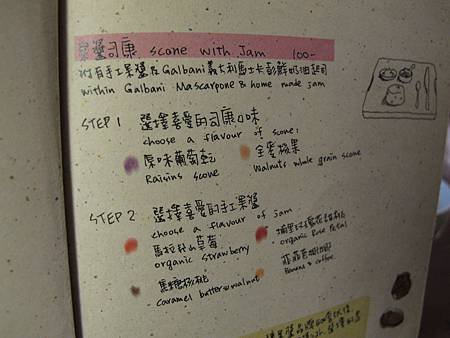 果醬司康 scone with Jam 100-
附有手工果醬及Galbani義大利馬士卡彭鮮奶油起司
within Galbani Mascarpone & home made jam
STEP 1 選擇喜愛的司康口味
choose a flavour of scone:
原味葡萄乾 全麥核果
Raisins scone Walnuts whole grain scone
STEP 2 選擇喜愛的手工果醬
choose a flavour of jam
馬拉和草莓
organic strawberry organic Rose Petal
焦糖核桃
caramel butter & walnut Banana & coffee